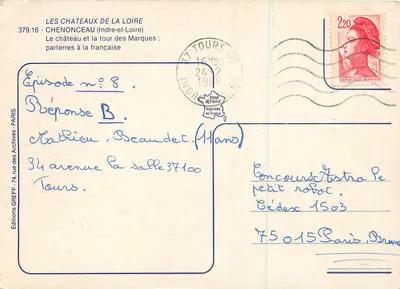 LES CHATEAUX DE LA LOIRE
379.16 - CHENONCEAU (Indre-et-Loire)
Le château et la tour des Marques ;
parterres à la française
Episode n° 8.
Réponse B.
Mathieu Beaudet (11 ans)
34 avenue la salle 37100
Tours.
Editions GREFF - 74, rue des Archives - PARIS
37 TOURS
24
INDRE
2,20
Concours Astra le
petit robot.
Cédex 1503
75015 Paris,